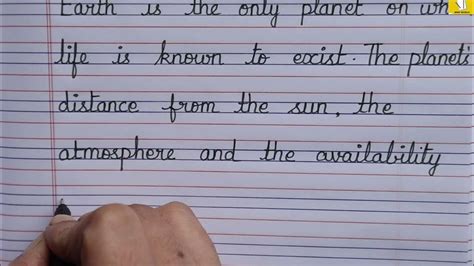 Earth is the only planet on wh
life is known to exist. The planet's
distance from the sun, the
atmosphere and the availability